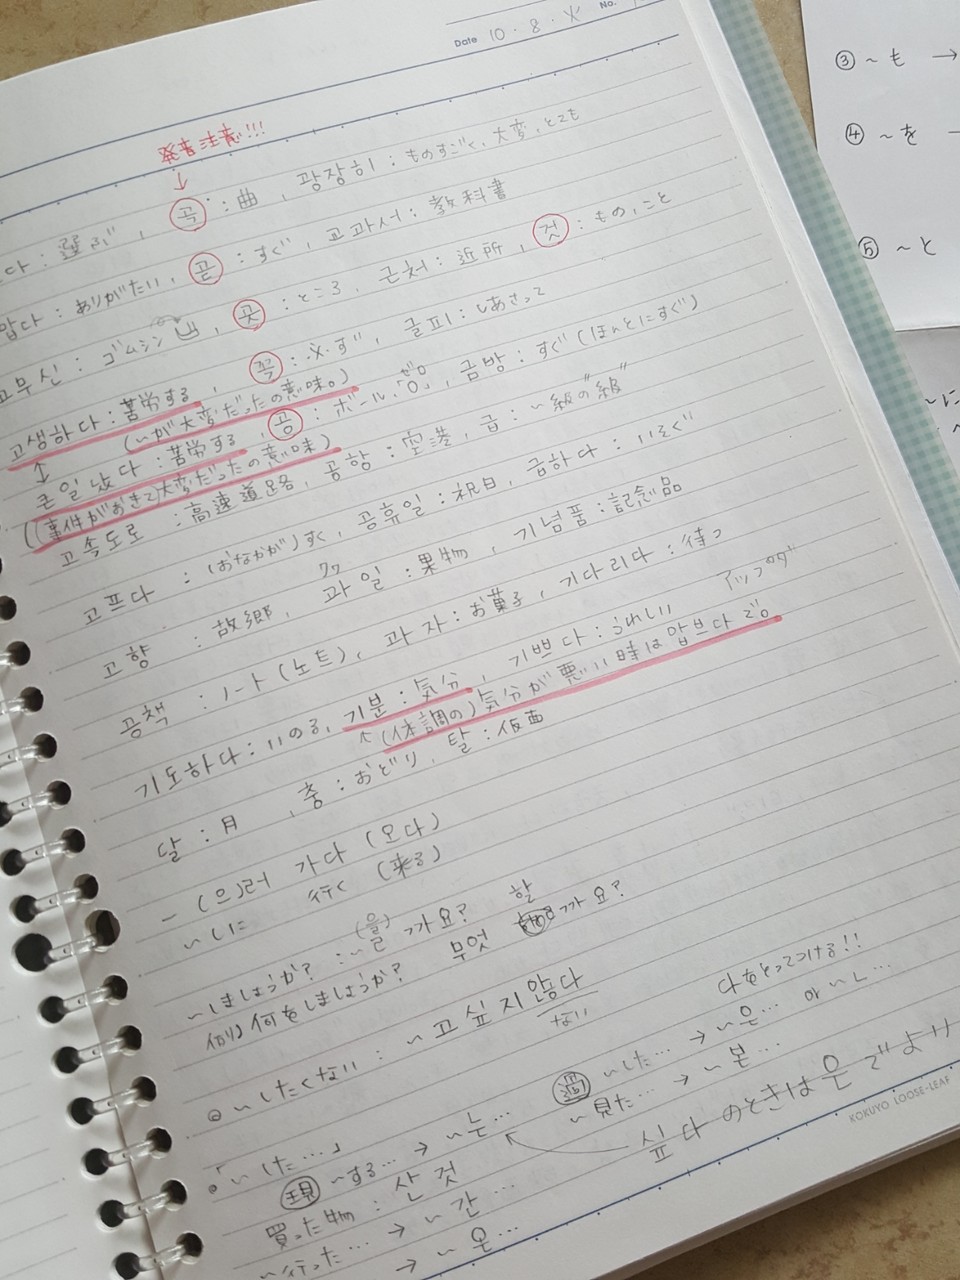 Date 10・8・火 No.
発音注意!!!
↓
다：選ぶ, 곡：曲, 굉장히：ものすごく, 大変, とても
맙다：ありがたい, 곧：すぐ, 교과서：教科書
고무신：ゴムシン, 곳：ところ, 근처：近所, 것：もの, こと
고생하다：苦労する, 꼭：必ず, 글피：しあさって
(～が大変だったの意味。)
↕
큰일났다：苦労する, 공：ボール, 「0」, ゼロ, 금방：すぐ(ほんとにすぐ)
((事件がおきて)大変だったの意味)
고속도로：高速道路, 공항：空港, 급：～級の"級"
고프다：(おなかが)すく, 공휴일：祝日, 급하다：いそぐ
고향：故郷, 과일：果物, クァ, 기념품：記念品
공책：ノート(노트), 과자：お菓子, 기다리다：待つ
기도하다：いのる, 기분：気分, 기쁘다：うれしい
↑(体調の)気分が悪い時は 압브다 で。
アップダ
달：月, 춤：おどり, 탈：仮面
－(으)러 가다 (오다)
～しに 行く (来る)
～しましょうか？：～ㄹ(을)까요?
例) 何をしましょうか？ 무엇 할까요?
◎～したくない：～고 싶지 않다
ない
다をとってつける!!
「～した…」 過 ～した… → ～은… or ～ㄴ…
～見た… → ～본…
現 ～する… → ～는…
싶다 のときは 은 でよい
買った物：산 것
～行った… → ～간…
→ ～온…
KOKUYO LOOSE-LEAF
③～も →
④～を
⑤～と
～に